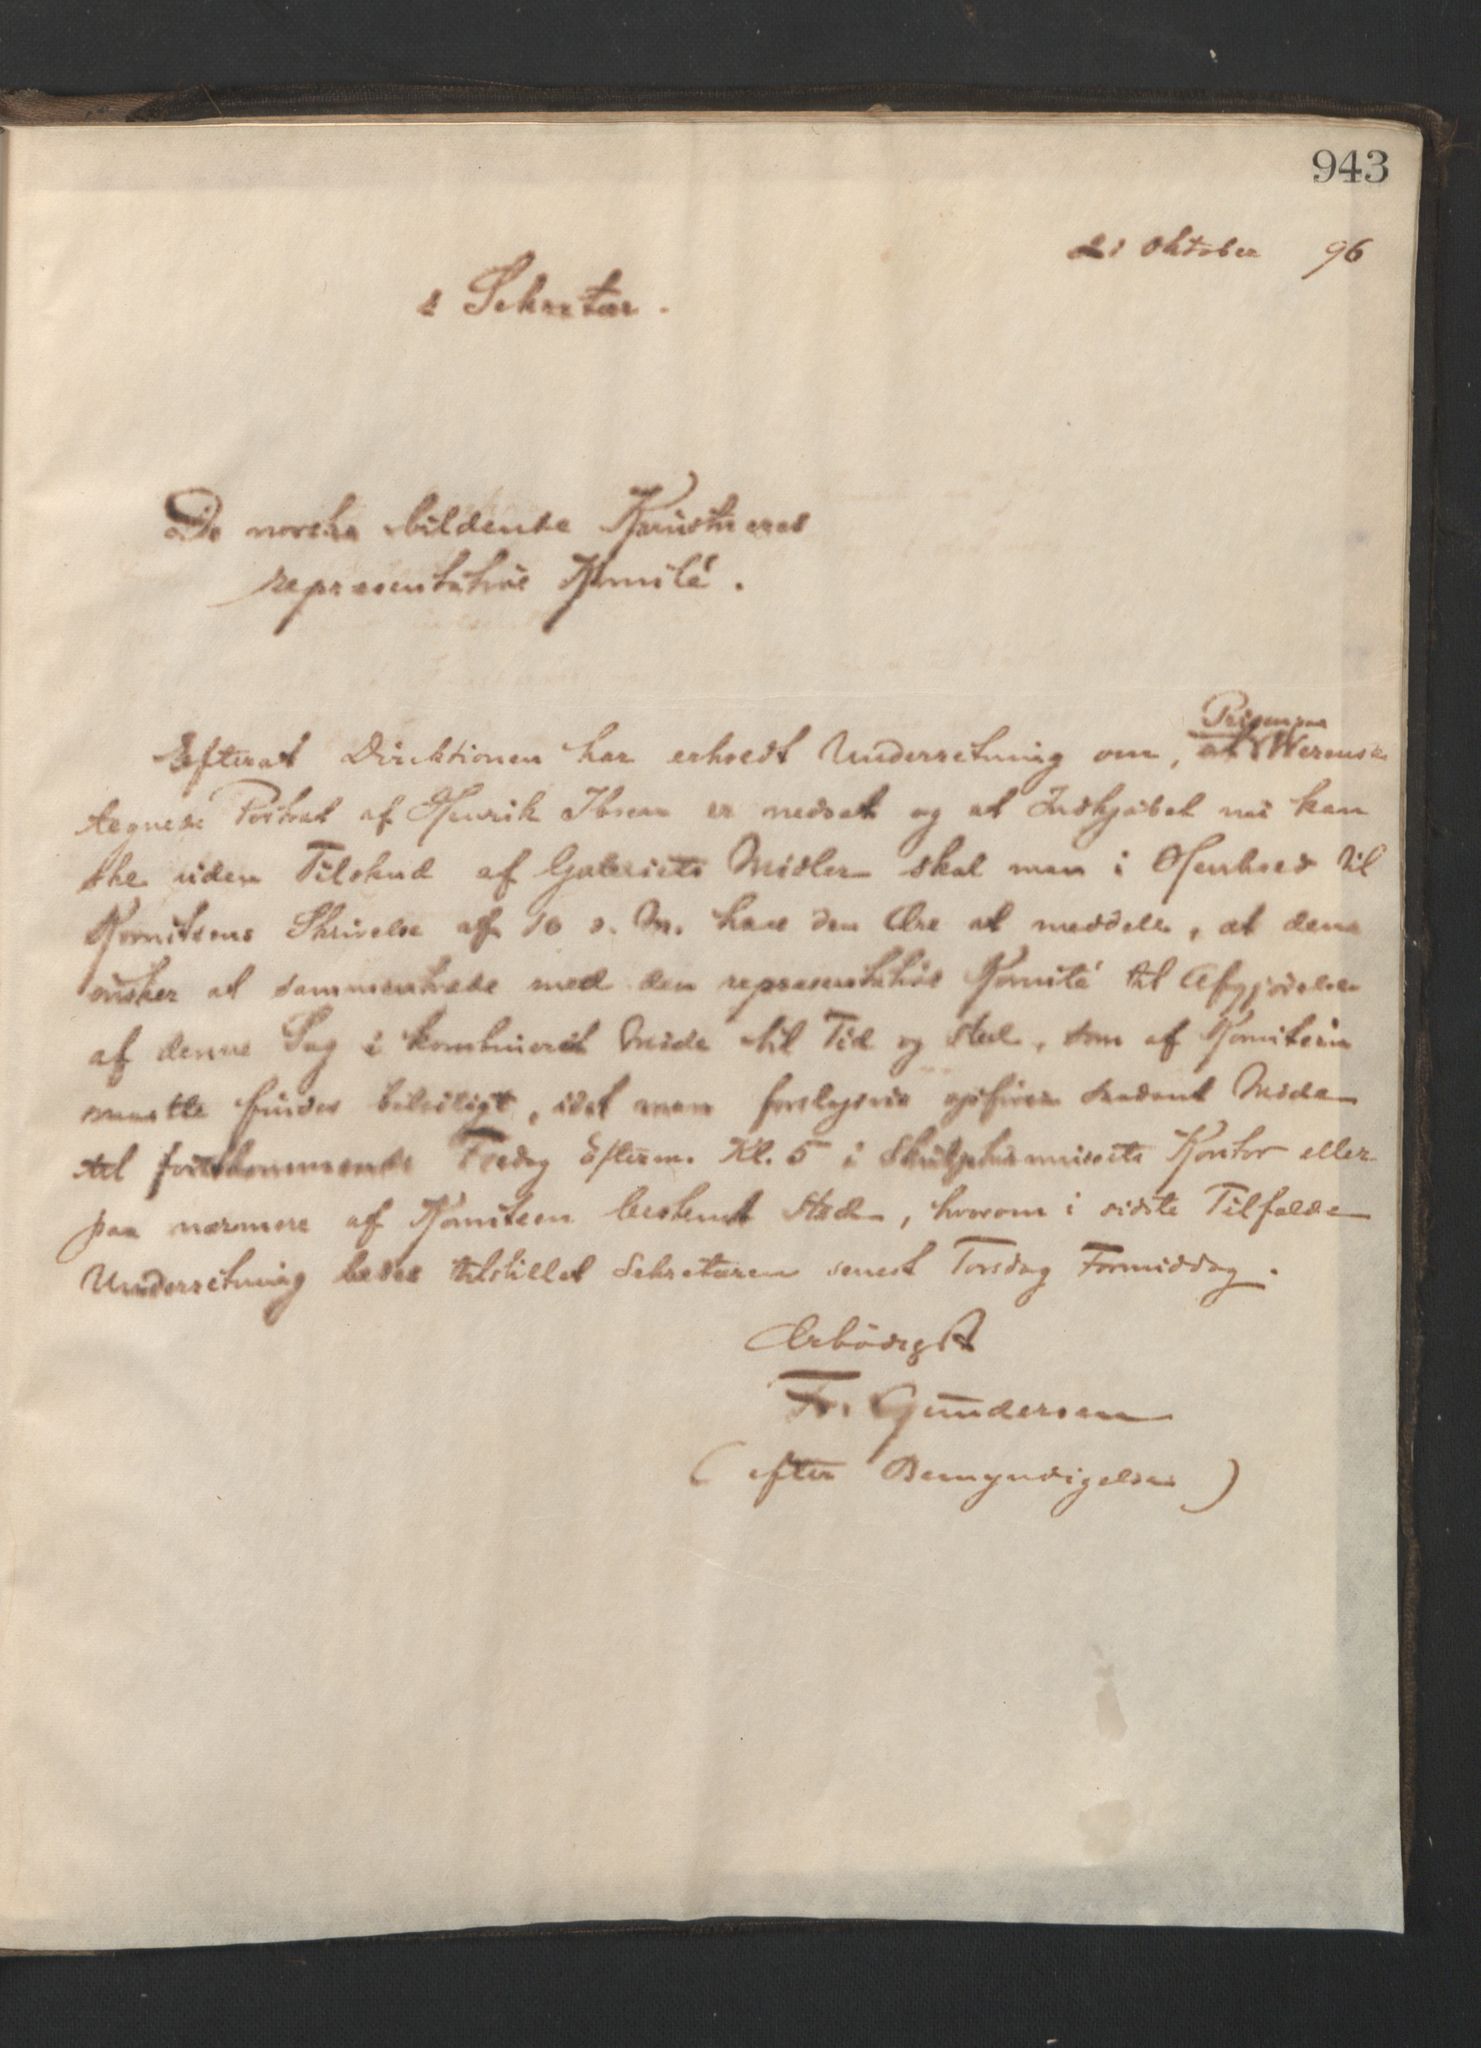 943
21 Oktober 96
s Sekretær.
De norske bildende Kunstneres
repræsentative Komité.
Prisen paa
Efterat Direktionen har erholdt Underretning om, at Werensk
tegnede Portræt af Henrik Ibsen er nedsat og at Indkjøbet nu kan
ske uden Tilskud af Galeriets Midler skal man i Henhold til
Komiteens Skrivelse af 10 d. M. have den Ære at meddele, at denne
ønsker at sammentræde med den repræsentative Komité til Afgjørelse
af denne Sag i kombineret Møde til Tid og Sted, som af Komiteen
maatte findes beleiligt, idet man forslagsvis opfører saadant Møde
til førstkommende Fredag Efterm. Kl. 5 i Skulpturmuseets Kontor eller
paa nærmere af Komiteen bestemt Sted, hvorom i sidste Tilfælde
Underretning bedes tilstillet Sekretæren senest Torsdag Formiddag.
Ærbødigst
Fr. Gundersen
(efter Bemyndigelse)